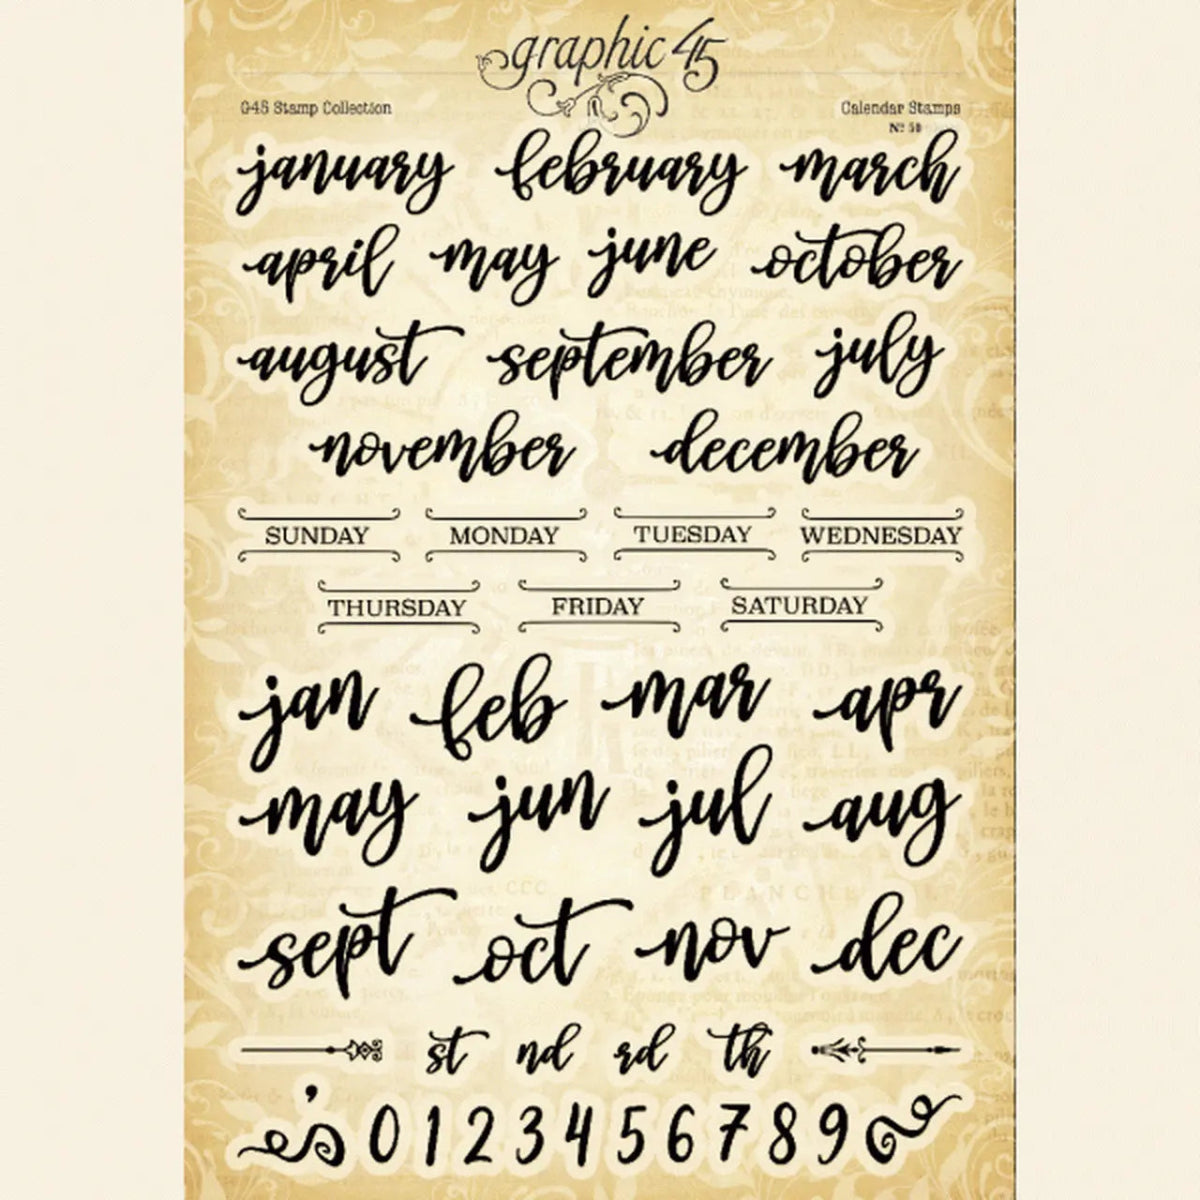 graphic 45
G45 Stamp Collection Calendar Stamps
Nº 59
january february march
april may june october
august september july
november december
SUNDAY MONDAY TUESDAY WEDNESDAY
THURSDAY FRIDAY SATURDAY
jan feb mar apr
may jun jul aug
sept oct nov dec
st nd rd th
' 0 1 2 3 4 5 6 7 8 9